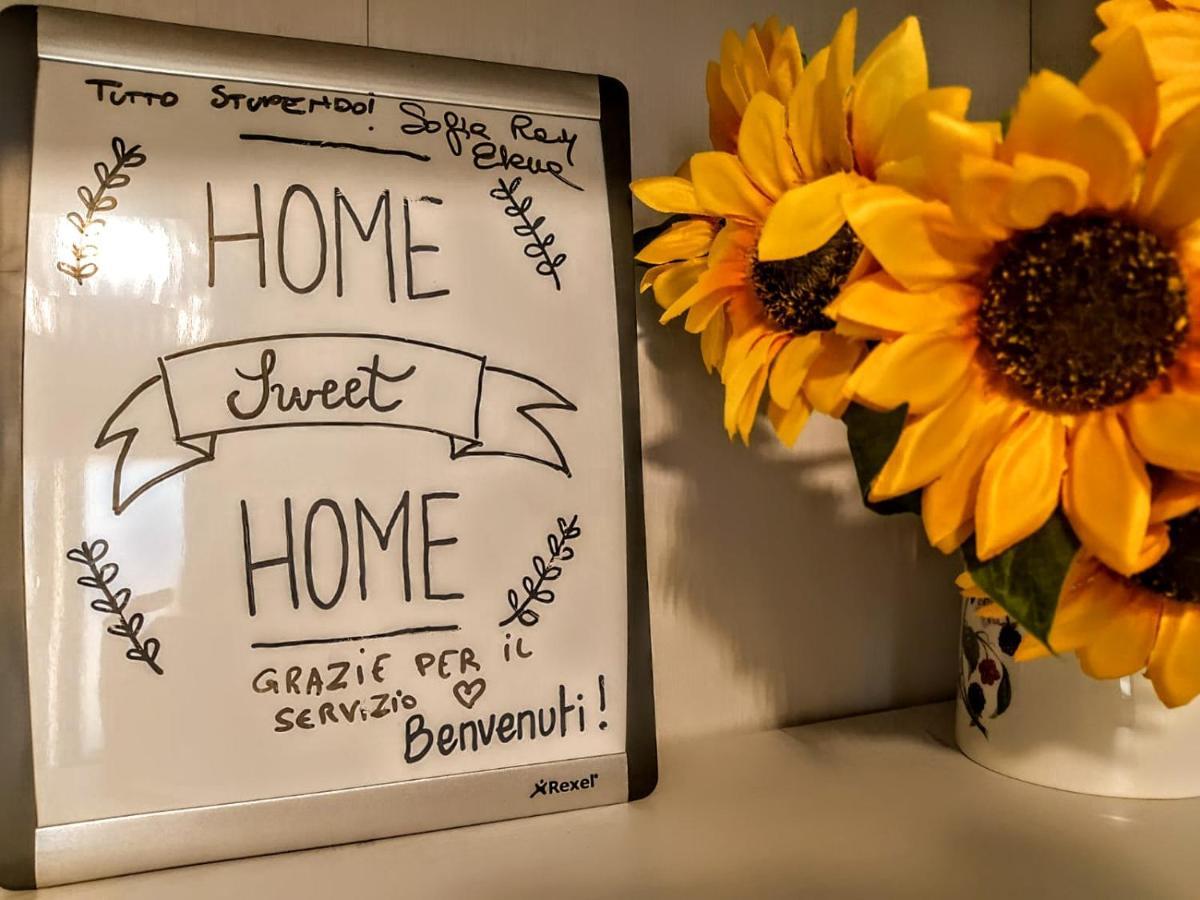 TUTTO STUPENDO! Sofia
Elena
HOME
Sweet
HOME
GRAZIE PER IL
SERVIZIO
Benvenuti!
Rexel